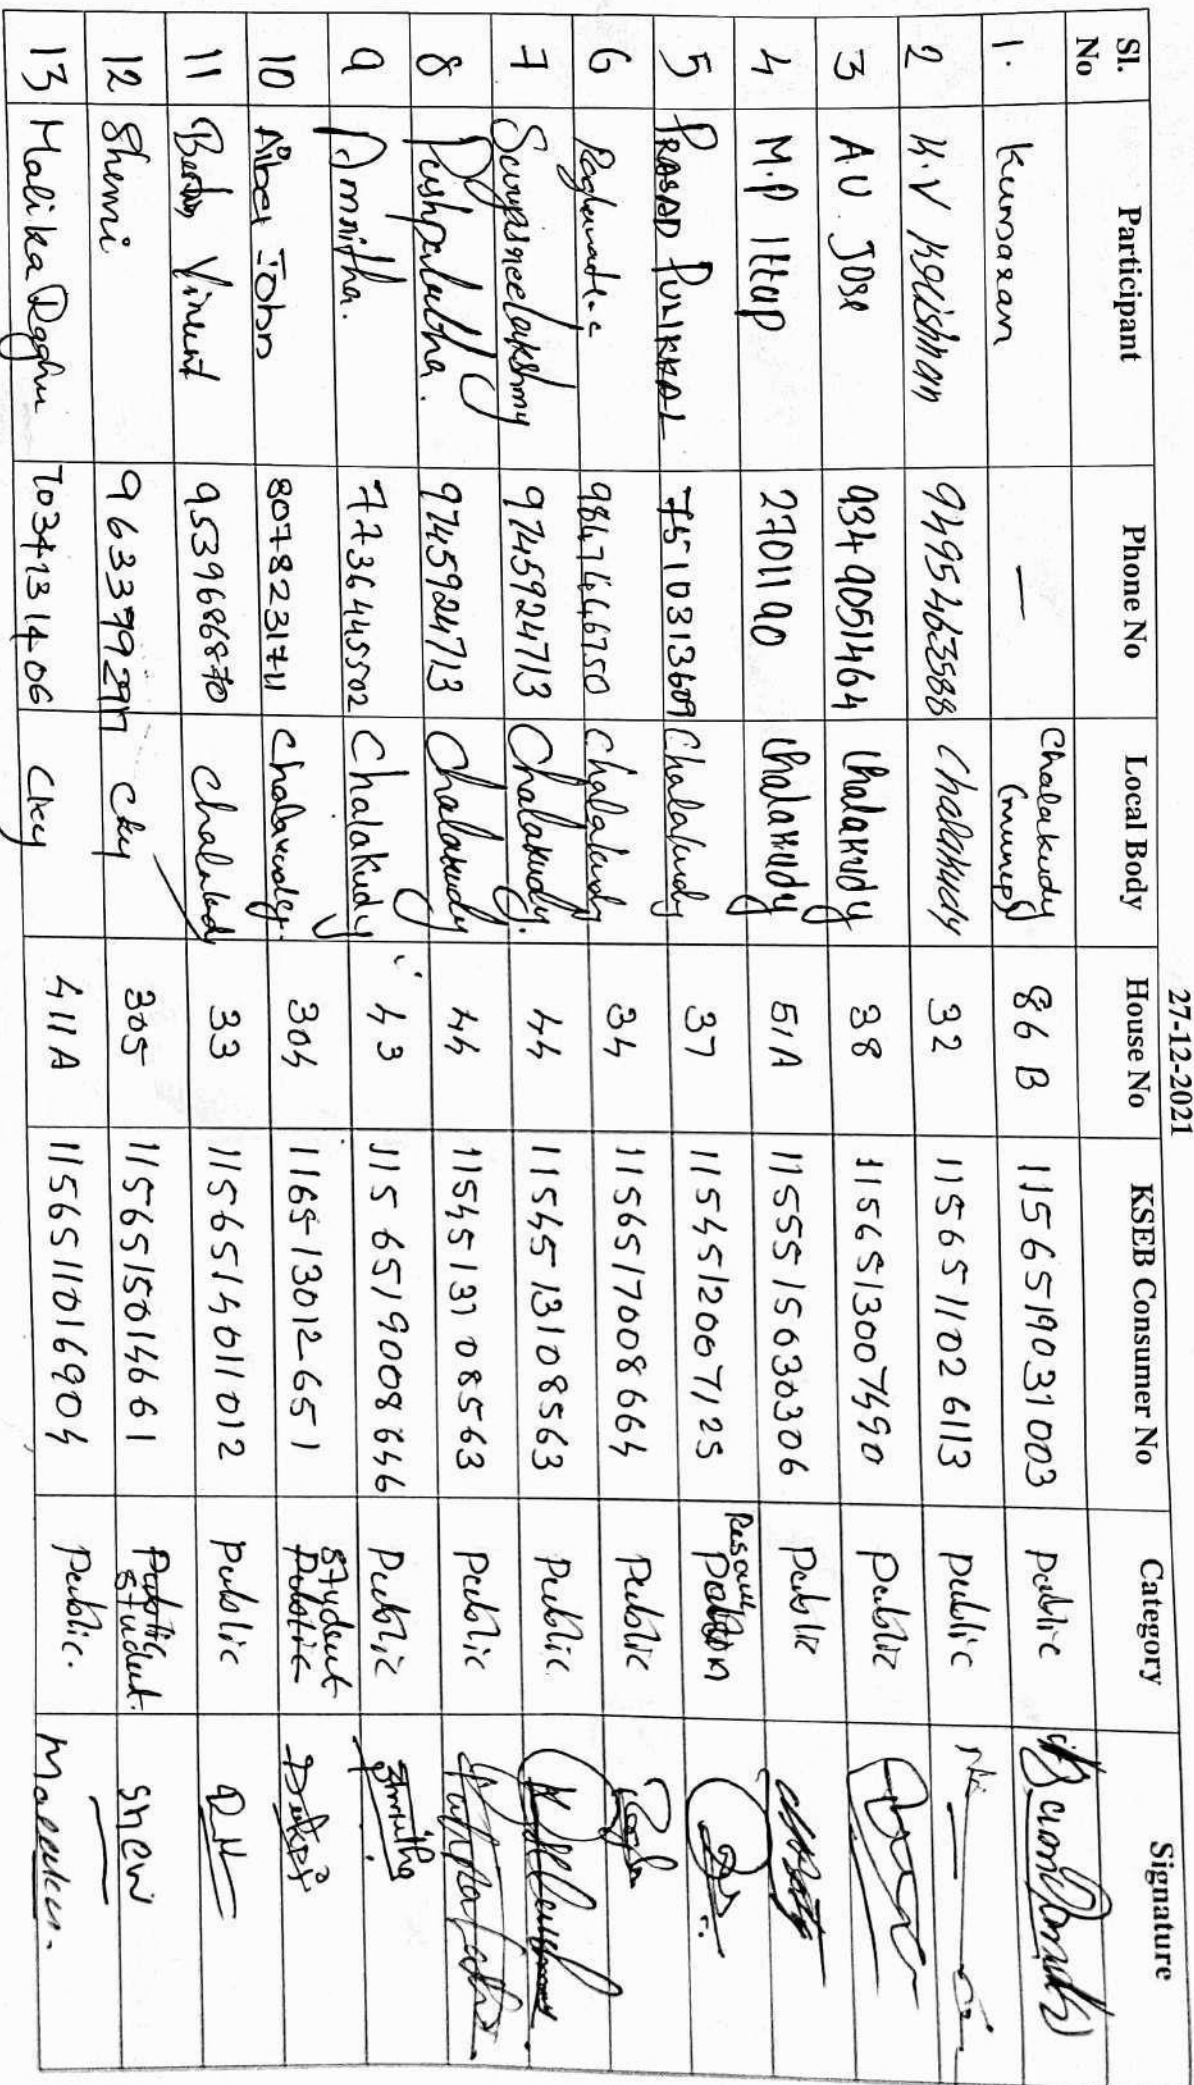 27-12-2021
Sl. No Participant Phone No Local Body House No KSEB Consumer No Category Signature
1. Kumaran — Chalakudy (muncip) 86 B 1156519031003 public
2 K.V Krishnan 9495463588 Chalakudy 32 1156511026113 public
3 A.U. Jose 9349051464 Chalakudy 38 1156513007490 Public
4 M.P Ittup 2701190 Chalakudy 51A 1155515030306 Public
5 PRASAD PUNIKKAL 7510313609 Chalakudy 37 1154512007125 Resou Person
6 9847446750 Chalakudy 34 1156517008664 Public
7 Suryasreelakshmy 9745924713 Chalakudy. 44 1154513108563 Public.
8 Pushpalatha. 9745924713 Chalakudy 44 1154513108563 Public
9 Amritha. 7736445502 Chalakudy 43 1156519008646 Public Amritha
10 Aibel John 8078231711 Chalakudy. 304 1165-13012651 student Public
11 Vincent 9539686870 Chalakudy 33 1156514011012 Public
12 Shemi 9633799297 Cky 305 1156515014661 Public student. Shemi
13 Malika Raghu 7034131406 Cky 411A 1156511016904 Public.